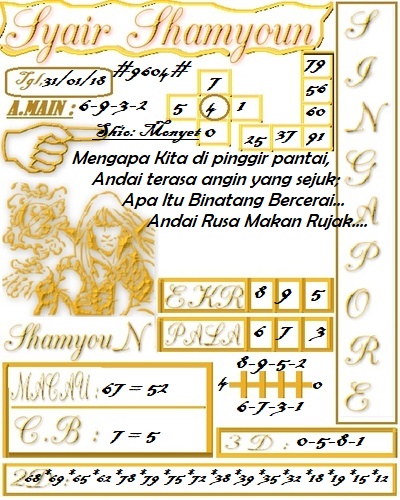 Syair Shamyoun
Tgl, 31/01/18
#9604#
A.MAIN : 6-9-3-2
Shio: Monyet
7
5 4 1
0
79
56
60
25 37 91
Mengapa Kita di pinggir pantai,
Andai terasa angin yang sejuk;
Apa Itu Binatang Bercerai...
Andai Rusa Makan Rujak....
SINGAPORE
EKR 8 9 5
Shamyou_N
PALA 6 7 3
MACAU : 67 = 52
C.B : 7 = 5
8-9-5-2
4 0
6-7-3-1
3D : 0-5-8-1
2D : 68*69*65*62*78*79*75*72*38*39*35*32*18*19*15*12